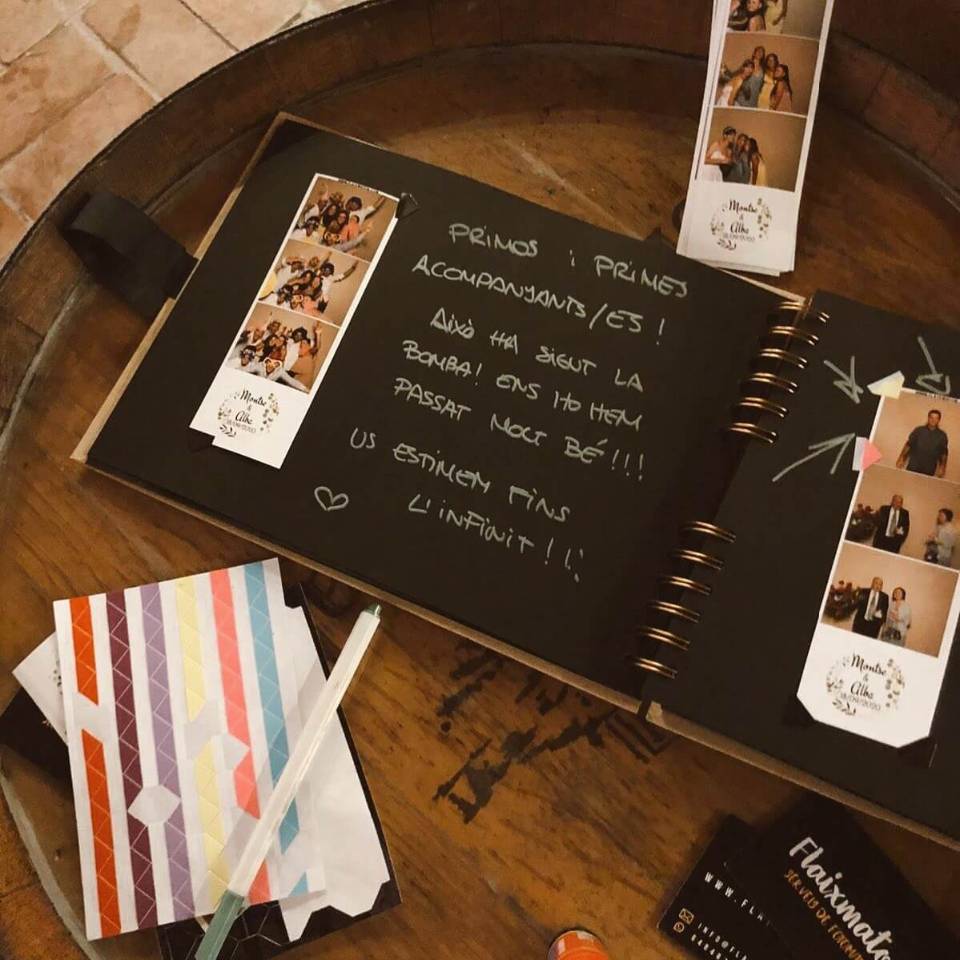 Montse
&
Alba
PRIMOS i PRIMES
ACOMPANYANTS/ES!
Això HA SIGUT LA
BOMBA! ENS HO HEM
PASSAT MOLT BÉ!!!
US ESTIMEM FINS
L'INFINIT!!
Montse
&
Alba
18/09/2020
Montse
&
Alba
18/09/2020
Flaixmato
SERVEIS DE
WWW.FLA
INFO@FL